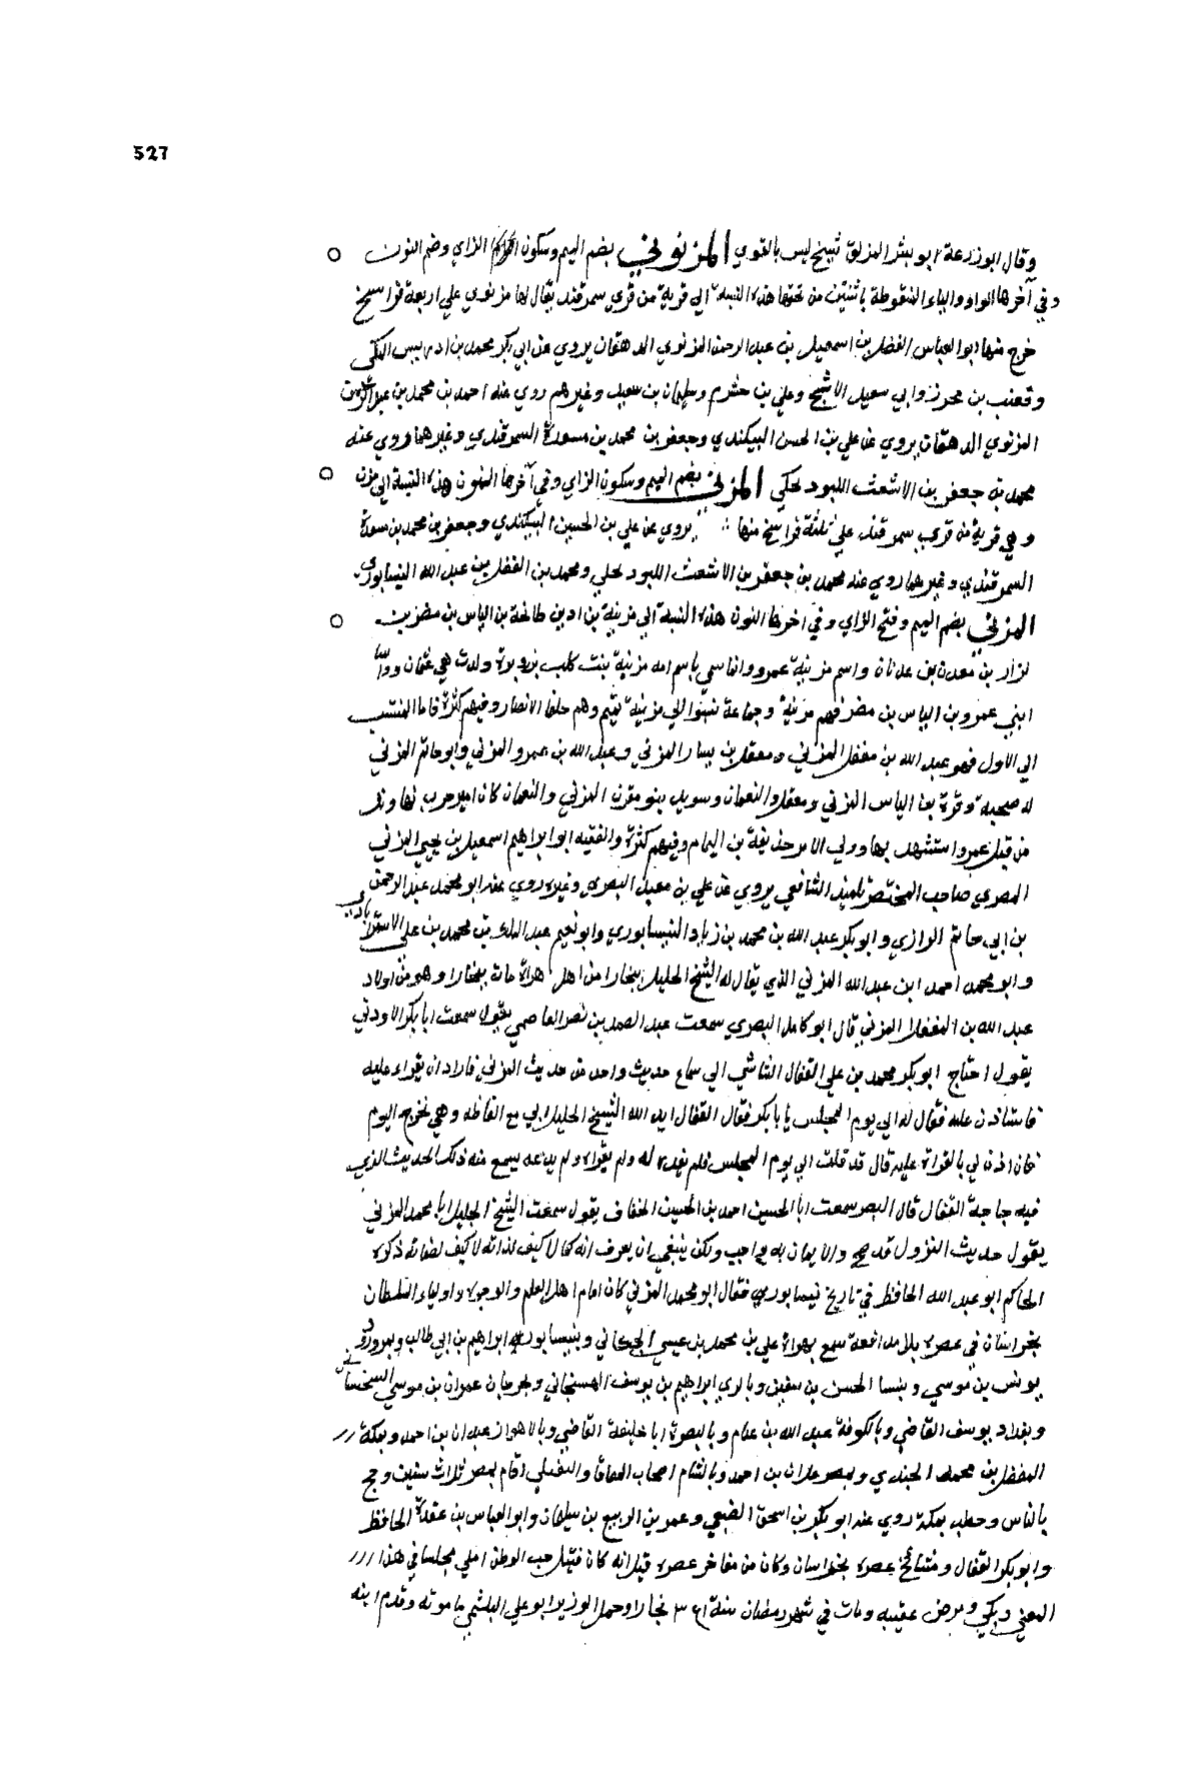 527
وقال ابو زرعة ابو بشر المزلق شيخ ليس بالقوي المزنوي بضم الميم وسكون الزاي وضم النون
وفي آخرها الواو والياء المنقوطة باثنتين من تحتها هذه النسبة الى قرية من قري سمرقند يقال لها مزنوي علي اربعة فراسخ
خرج منها ابو العباس الفضل بن اسمعيل بن عبد الرحمن المزنوي الدهقان يروي عن ابي بكر محمد بن ادريس المكي
وقعنب بن محرز وابي سعيد الاشج وعلي بن خشرم وسليمان بن سعيد وغيرهم روي عنه احمد بن محمد بن عبد الرحمن
المزنوي الدهقان يروي عن علي بن الحسن البيكندي وجعفر بن محمد بن مسعدة السمرقندي وغيرهما روي عنه
محمد بن جعفر بن الاشعث اللبود لحكي المزني بضم الميم وسكون الزاي وفي آخرها النون هذه النسبة الى مزن
وهي قرية من قري سمرقند علي ثلثة فراسخ منها يروي عن علي بن الحسين البيكندي وجعفر بن محمد بن مسعدة
السمرقندي وغيرهما روي عنه محمد بن جعفر بن الاشعث اللبود لحلي ومحمد بن الفضل بن عبد الله النيسابوري
المزني بضم الميم وفتح الزاي وفي اخرها النون هذه النسبة الى مزينة بن اد بن طابخة بن الياس بن مضر بن
نزار بن معد بن عدنان واسم مزينة عمرو وانما سمي باسم امه مزينة بنت كلب بن وبرة ولدت هي عثمان وواسا
ابني عمرو بن الياس بن مضر فهم مزينة وجماعة نسبوا الي مزينة وهم حلفا الانصار وفيهم كثرة فاما المنتسب
الي الاول فهو عبد الله بن مغفل المزني ومعقل بن يسار المزني وعبد الله بن عمرو المزني وابو حاتم المزني
له صحبة وقرة بن الياس المزني ومعقل والنعمان وسويد بنو مقرن المزني والنعمان كان امير حرب نهاوند
من قبل عمر واستشهد بها وولي الامر حذيفة بن اليمام وفيهم كثرة والفقيه ابو ابراهيم اسمعيل بن يحيي المزني
المصري صاحب المختصر تلميذ الشافعي يروي عن علي بن معبد البصري وغيره روي عنه ابو محمد عبد الرحمن
بن ابي حاتم الرازي وابو بكر عبد الله بن محمد بن زياد النيسابوري وابو نعيم عبد الملك بن محمد بن علي الاستراباذي
وابو محمد احمد ابن عبد الله المزني الذي يقال له الشيخ الجليل ببخارا من اهل هراة مات ببخارا وهو من اولاد
عبد الله بن المغفل المزني قال ابو كامل البصري سمعت عبد الصمد بن نصر العاصمي يقول سمعت ابا بكر الاودني
يقول احتاج ابو بكر محمد بن علي القفال الشاشي الي سماع حديث واحد من حديث المزني فاراد ان يقراه عليه
فاستاذن عليه فقال له الي يوم المجلس يابا بكر فقال القفال ايد الله الشيخ الجليل ابي مع القافلة وهي تخرج اليوم
فان اذن لي بالقراة عليه قال قد قلت الي يوم المجلس فلم يعده له ولم يقراه ولم يدعه يسمع منه ذلك الحديث الذي
فيه حاجة القفال قال البصر سمعت ابا الحسين احمد بن الحسين الخفاف يقول سمعت الشيخ الجليل ابا محمد المزني
يقول حديث النزول قد صح والايمان به واجب ولكن ينبغي ان يعرف انه كما لا كيف لذاته لا كيف لصفاته ذكره
الحاكم ابو عبد الله الحافظ في تاريخ نيسابور فقال ابو محمد المزني كان امام اهل العلم والوجوه واولياء السلطان
بخراسان في عصره بلا مدافعة سمع بهراة علي بن محمد بن عيسي الجكاني وبنيسابور ابراهيم بن ابي طالب وبمروروذ
يوسف بن موسي وبنسا الحسن بن سفين وبالري ابراهيم بن يوسف الهسنجاني وبجرجان عمران بن موسي السختياني
وبغداد يوسف القاضي وبالكوفة عبد الله بن غنام وبالبصرة ابا خليفة القاضي وبالاهواز عبدان بن احمد وبمكة
المفضل بن محمد الجندي وبمصر علان بن احمد وبالشام اصحاب المعافا والنفيلي اقام بمصر ثلاث سنين وحج
بالناس وخطب بمكة روي عنه ابو بكر بن اسحق الضبعي وعمر بن الربيع بن سليمان وابو العباس بن عقدة الحافظ
وابو بكر القفال ومشائخ عصره بخراسان وكان من مفاخر عصره قيل انه كان قتيل حب الوطن املي مجلسا في هذا
المعني وبكي ومرض عقيبه ومات في شهر رمضان سنة ٣٤١ ببخارا وحمل الوزير ابو علي البلعمي تابوته وقدم ابنه